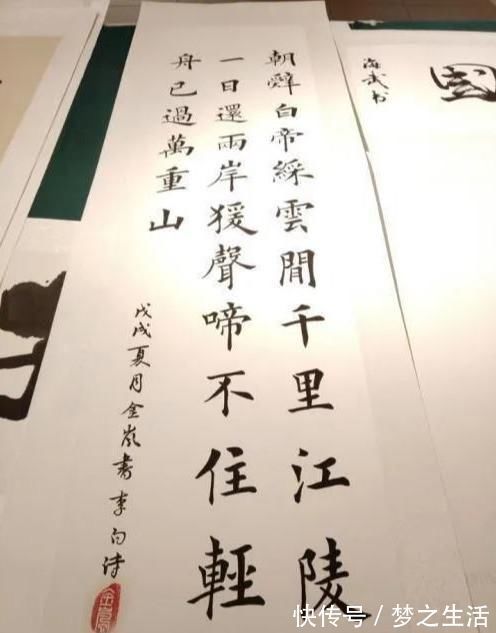 朝辭白帝綵雲間千里江陵
一日還兩岸猨聲啼不住輕
舟已過萬重山
戊戌夏月金嵐書李白詩
國
海武书
快传号/梦之生活